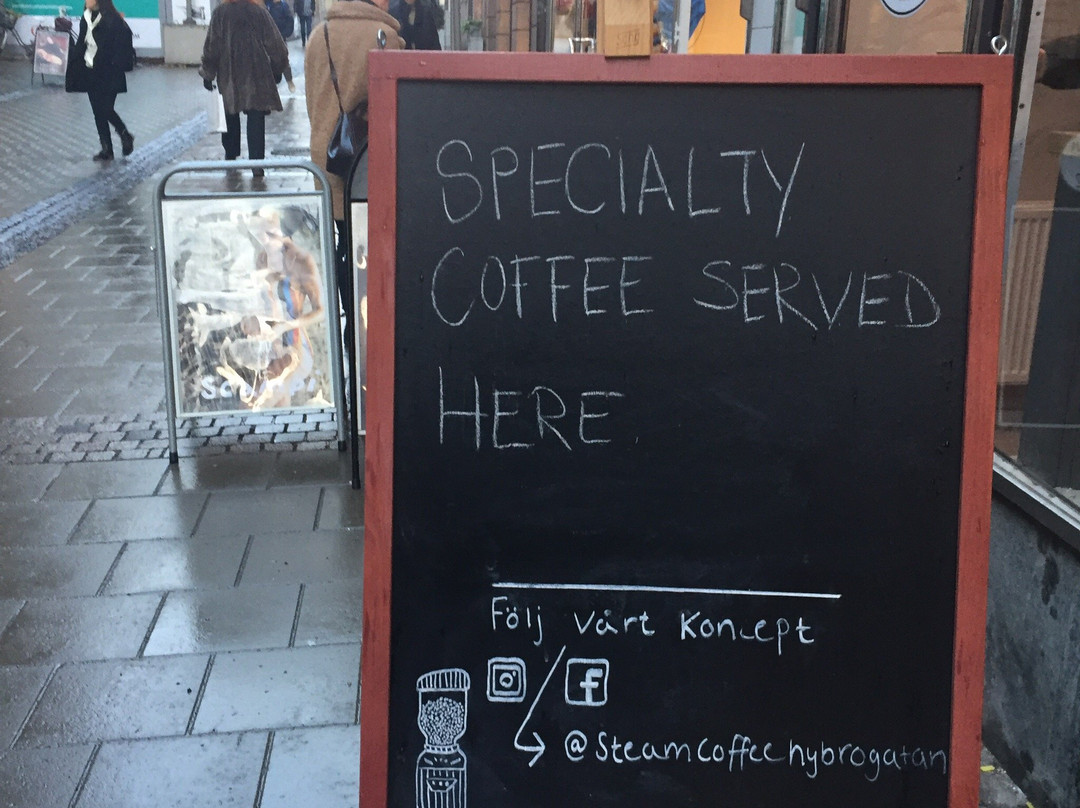 SPECIALTY
COFFEE SERVED
HERE.
Följ vårt koncept
@steamcoffeehybrogatan